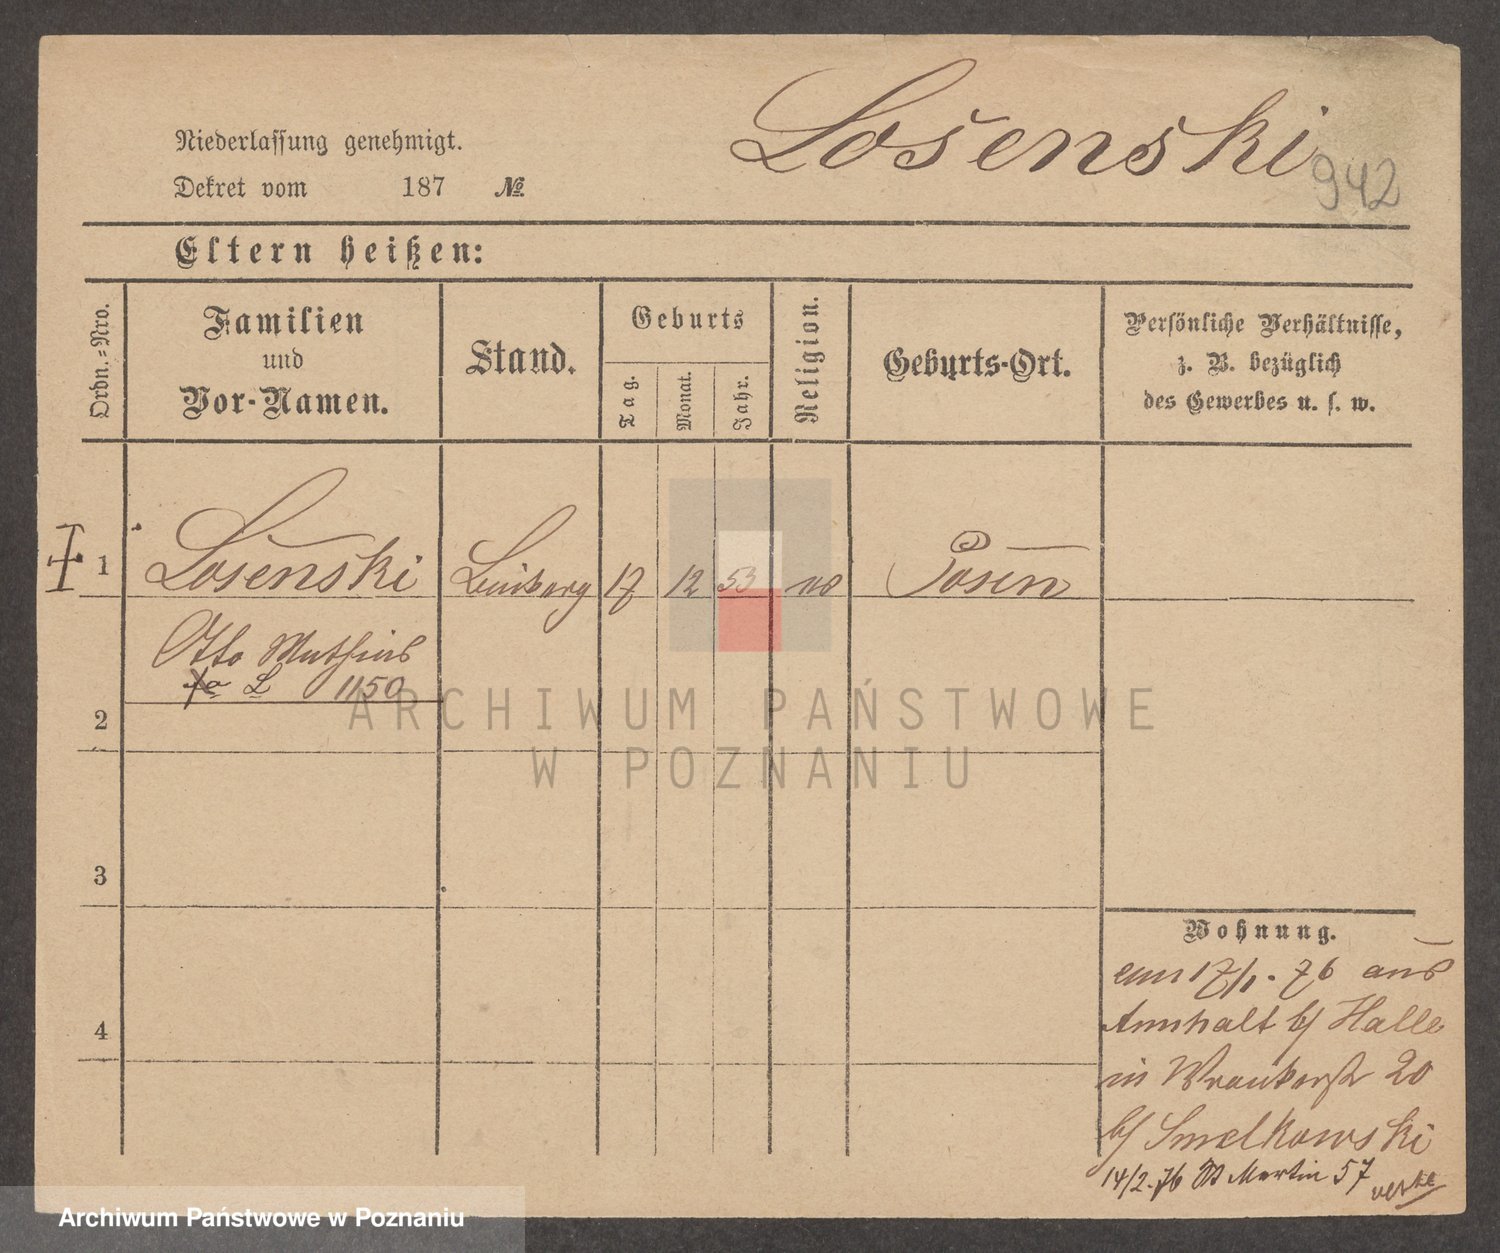 Lošenski
942
Niederlassung genehmigt.
Dekret vom 187 №
Eltern heißen:
Ordn.=Nro.
Familien
und
Vor-Namen.
Stand.
Geburts
Tag.
Monat.
Jahr.
Religion.
Geburts-Ort.
Persönliche Verhältnisse,
z. B. bezüglich
des Gewerbes u. s. w.
1 Lošenski 17 12 53 Posen
Otto
L 1150
2
3
4
Wohnung.
am 17/1. 76 aus
Annhalt b/ Halle
in Wronkerstr 20
b/ Smelkowski
14/2. 76 St Martin 57
ARCHIWUM PAŃSTWOWE
W POZNANIU
Archiwum Państwowe w Poznaniu